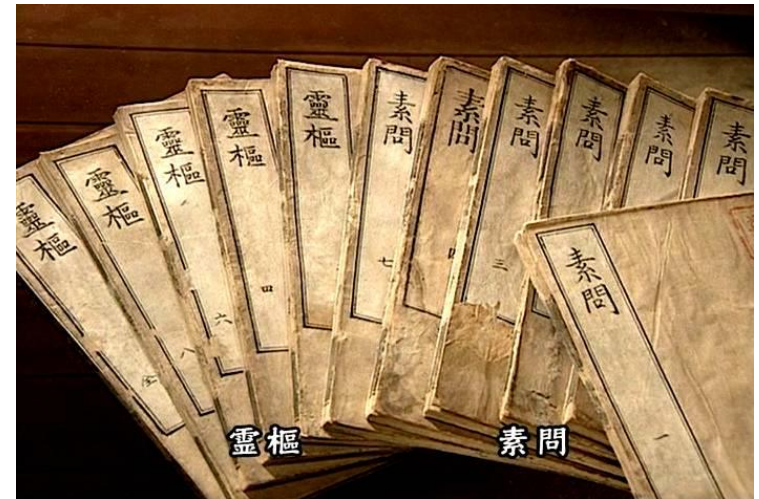 靈樞
全
靈樞
八
靈樞
六
靈樞
四
靈樞
素問
七
素問
素問
三
素問
素問
素問
素問
一
霊樞
素問